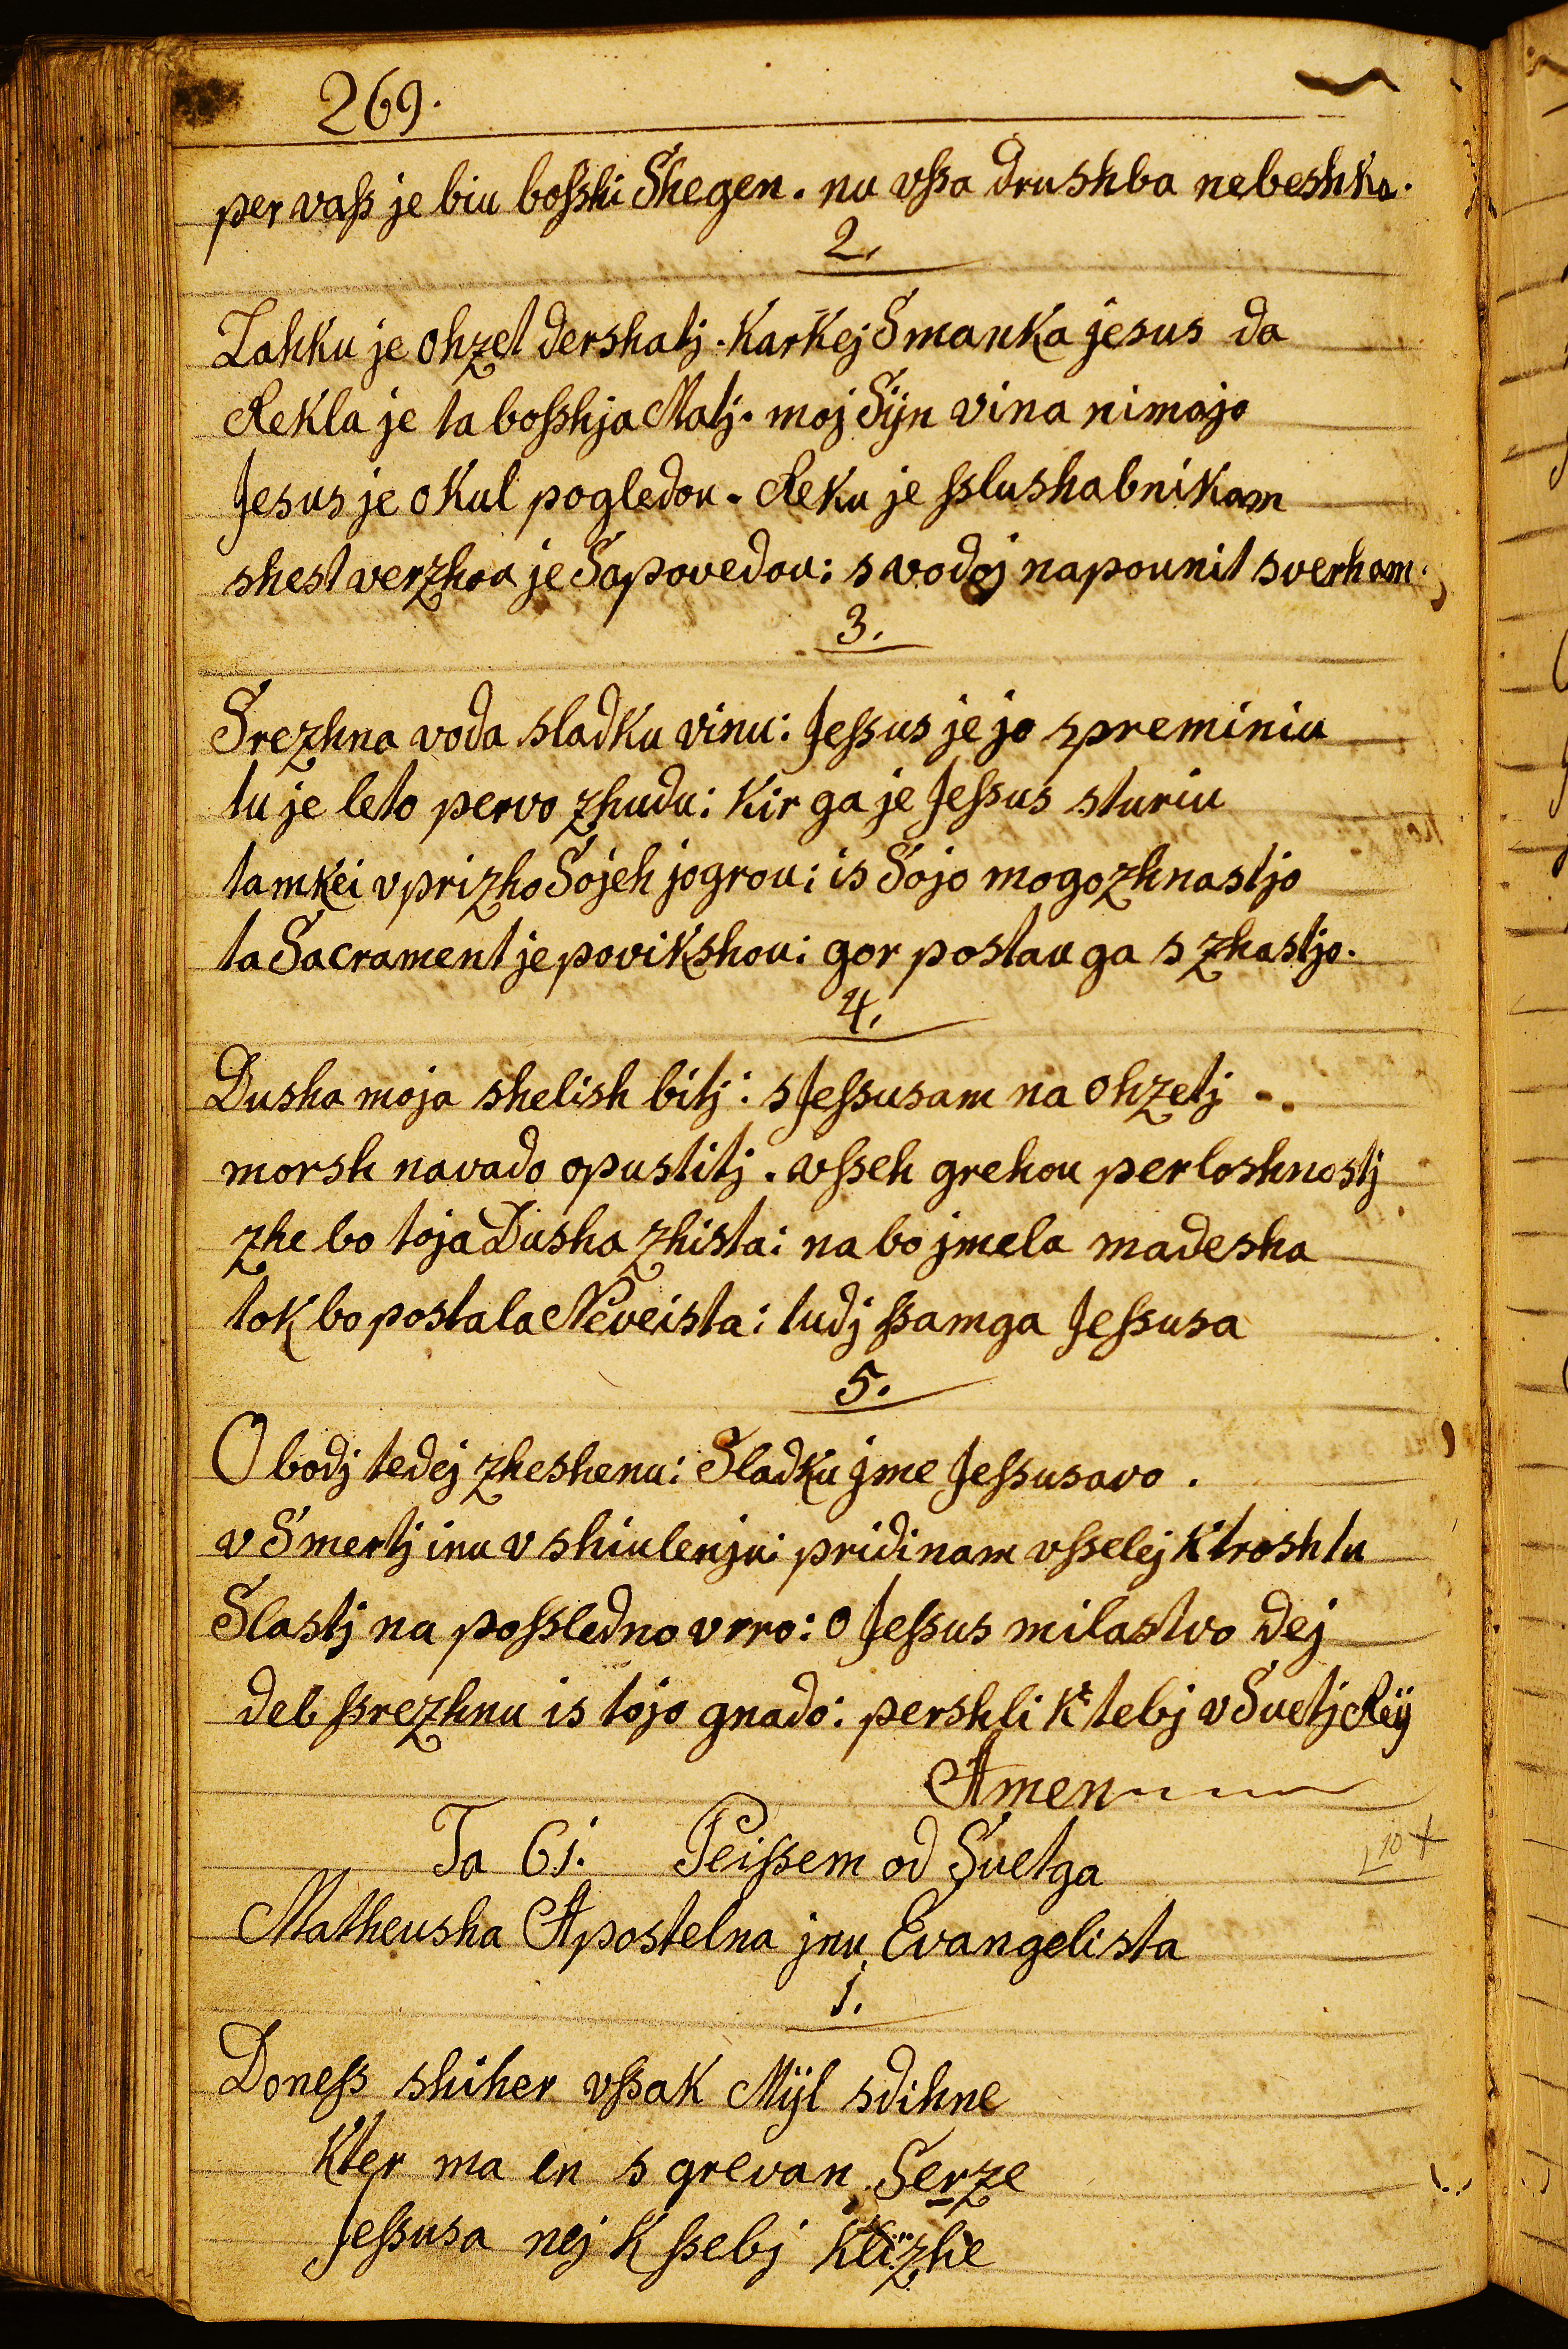 269.
per vaß je biu boßhi Shegen. nu vßa Drushba nebeshka.
2.
Lahku je ohzet dershatj. Karkej Smanka jesus da
Rekla je ta boßhja Matj. moj Sÿn vina nimajo
Jesus je okul pogledou. Reku je ßlushabnikam
shest verzhou je Sapovedou: s vodoj napounit sverham.
3.
Srezhna voda sladku vinu: Jeßus je jo spreminiu
tu je leto pervo zhudu: kir ga je Jeßus sturiu
tamkei vprizho Sojeh jogrou: is Sojo mogozhnastjo
ta Sacrament je povikshou: gor postau ga s zhastjo.
4.
Dusha moja shelish bitj: s Jeßusam na ohzetj
morsh navado opustitj. vßeh grehou perloshnostj
zhe bo toja Dusha zhista: na bo jmela madesha
tok bo postala Neveista: tudj ßamga Jeßusa
5.
O bodj tedej zheshenu: Sladku jme Jeßusavo.
v Smertj inu v shiulenju: pridi nam vßelej k troshtu
Slastj na poßledno vrro: o Jeßus milastvo dej
deb ßrezhnu is tojo gnado: pershli k tebj v Suetj Rÿ
Amen
Ta 61. Peißem od Suetga
10 +
Matheusha Apostelna jnu Evangelista
1.
Doneß shiher vßak Mÿl sdihne
kter ma en s grevan Serze
Jeßusa nej k ßebj klizhe